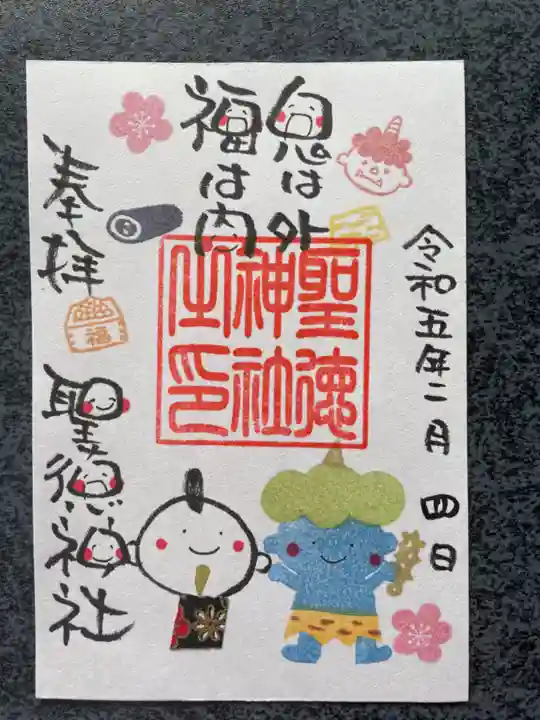 鬼は外
福は内
令和五年二月 四日
奉拝
聖徳神社
聖徳
神社
之印
福